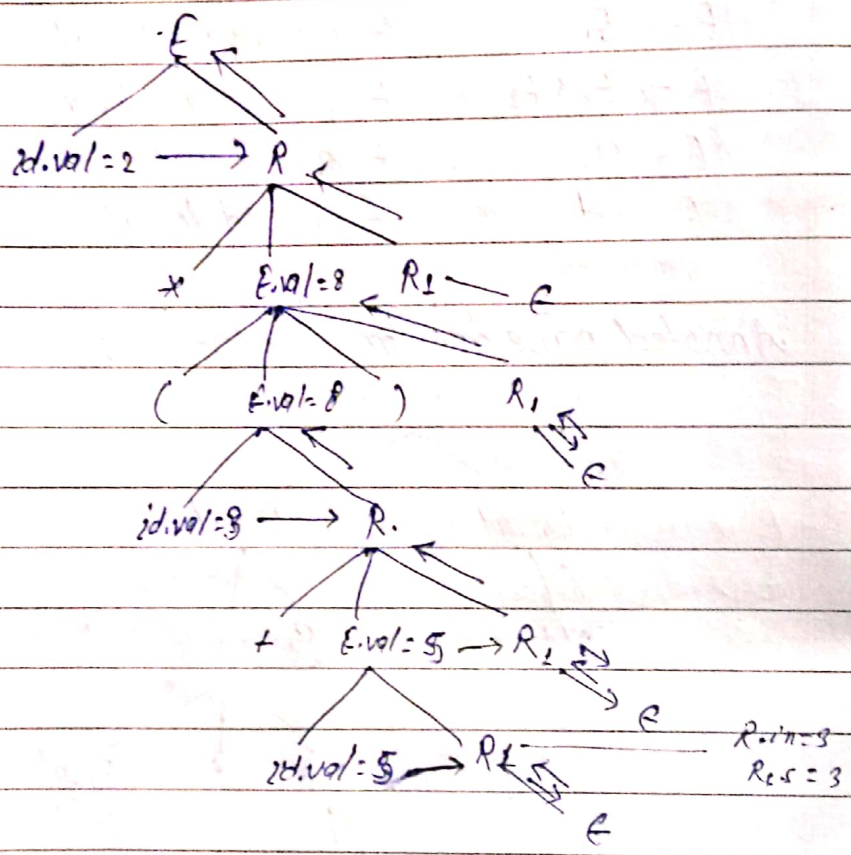 E
id.val=2 → R
* E.val=8 R1 ϵ
( E.val=8 ) R1
ϵ
id.val=3 → R.
+ E.val=5 → R1
ϵ
id.val=5 → R1 R.in=3
R1.s=3
ϵ